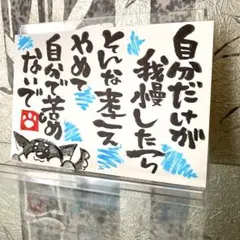 自分だけが
我慢したら
そんな考え
やめて
自分で苦め
ないで